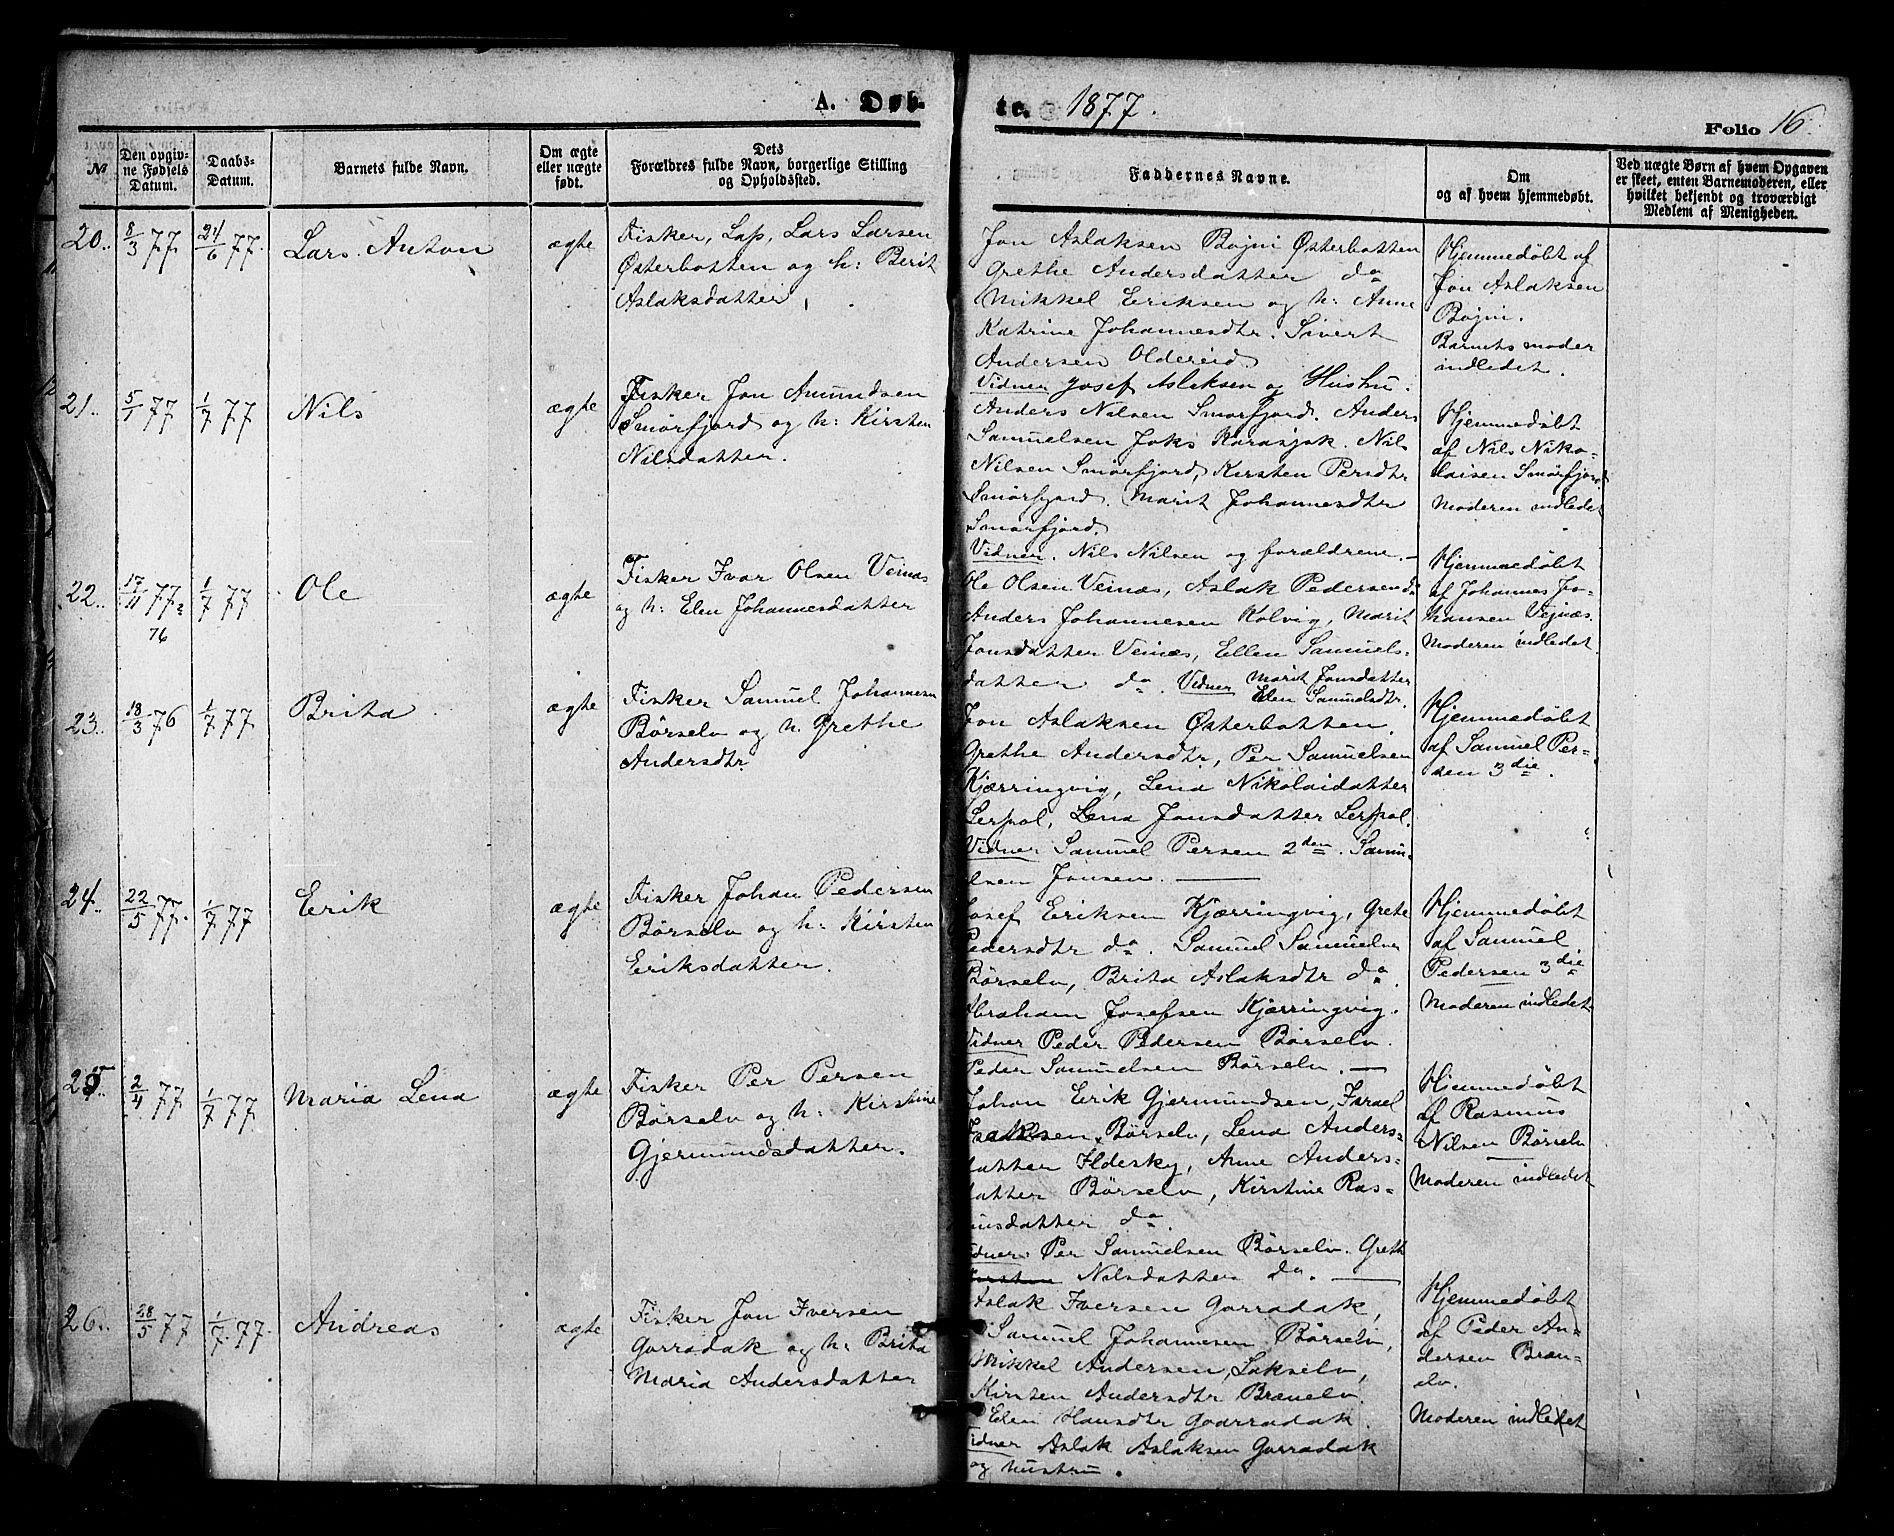 A. Døb-
te. 1877.
Folio 16.
№
Den opgiv-
ne Fødsels
Datum.
Daabs-
Datum.
Barnets fulde Navn.
Om ægte
eller uægte
født.
Dets
Forældres fulde Navn, borgerlige Stilling
og Opholdssted.
Faddernes Navne.
Om
og af hvem hjemmedøbt.
Ved uægte Børn af hvem Opgaven
er skeet, enten Barnemoderen, eller
hvilket bekjendt og troværdigt
Medlem af Menigheden.
20.. 8/3 77 24/6 77. Lars Anton ægte
Fisker, Lap, Lars Larsen
Østerbotten og h: Berit
Aslaksdatter,
Jon Aslaksen Bojni Østerbotten
Grethe Andersdatter do
Mikkel Eriksen og h: Anne
Katrine Johannesdtr. Sivert
Andersen Oldereid
Vidner Josef Aslaksen og Hustru.
Hjemmedøbt af
Jon Aslaksen
Bojni.
Barnets moder
indledet.
21.. 5/1 77 1/7 77 Nils ægte
Fisker Jon Amundsen
Smörfjord og h: Kirsten
Nilsdatter.
Anders Nilsen Smörfjord. Anders
Samuelsen Joks Karasjok. Nils
Nilsen Smörfjord, Kirsten Persdtr
Smörfjord. Marit Johannesdtr
Smörfjord.
Vidner. Nils Nilsen og forældrene.
Hjemmedøbt
af Nils Niko-
laisen Smörfjord.
Moderen indledet
22.. 17/11 77 76 1/7 77 Ole ægte
Fisker Ivar Olsen Veinæs
og h: Elen Johannesdatter
Ole Olsen Veinæs, Aslak Pedersen do
Anders Johannesen Kolvig, Marit
Jonsdatter Veinæs, Ellen Samuels-
datter do. Vidner Marit Jonsdatter
Elen Samuelsdtr.
Hjemmedøbt
af Johannes Jo-
hansen Vejnæs.
Moderen indledet.
23.. 18/3 76 1/7 77 Brita ægte
Fisker Samuel Johannesen
Børselv og h. Grethe
Andersdtr
Jon Aslaksen Østerbotten.
Grethe Andersdtr, Per Samuelsen
Kjærringvig, Lena Nikolaidatter
Lerpol, Lena Jonsdatter Lerpol.
Vidner Samuel Persen 2den. Samu-
elsen Jonsen.
Hjemmedøbt
af Samuel Per-
den 3die.
24.. 22/5 77. 1/7 77 Erik ægte
Fisker Johan Pedersen
Børselv og h: Kirsten
Eriksdatter.
Josef Eriksen Kjærringvig, Grete
Pedersdtr do. Samuel Samuelsen
Börselv, Brita Aslaksdtr do.
Abraham Josefsen Kjærringvig.
Vidner Peder Pedersen Børselv.
Peder Samuelsen Børselv.
Hjemmedøbt
af Samuel
Pedersen 3die
Moderen indledet
25.. 2/4 77 1/7 77. Maria Lena ægte
Fisker Per Persen
Børselv og h: Kirstine
Gjermundsdatter.
Johan Erik Gjermundsen, Israel
Isaksen Børselv, Lena Anders-
datter Ildesky, Anne Anders-
datter Børselv, Kirstine Ras-
musdatter do.
Vidner: Per Samuelsen Børselv. Greth
Nilsdatter do.
Hjemmedøbt
af Rasmus
Nilsen Børselv
Moderen indledet
26.. 28/5 77 1/7. 77. Andreas ægte
Fisker Jon Iversen
Gorradak og h: Brita
Maria Andersdatter
Aslak Iversen Gorradak,
Samuel Johannesen Børselv,
Mikkel Andersen, Lakselv,
Kirsten Andersdtr Brænelv.
Elen Hansdtr Goarradak.
Vidner Aslak Aslaksen Gorradak
og hustru.
Hjemmedøbt
af Peder An-
dersen Bræn-
elv.
Moderen indledet